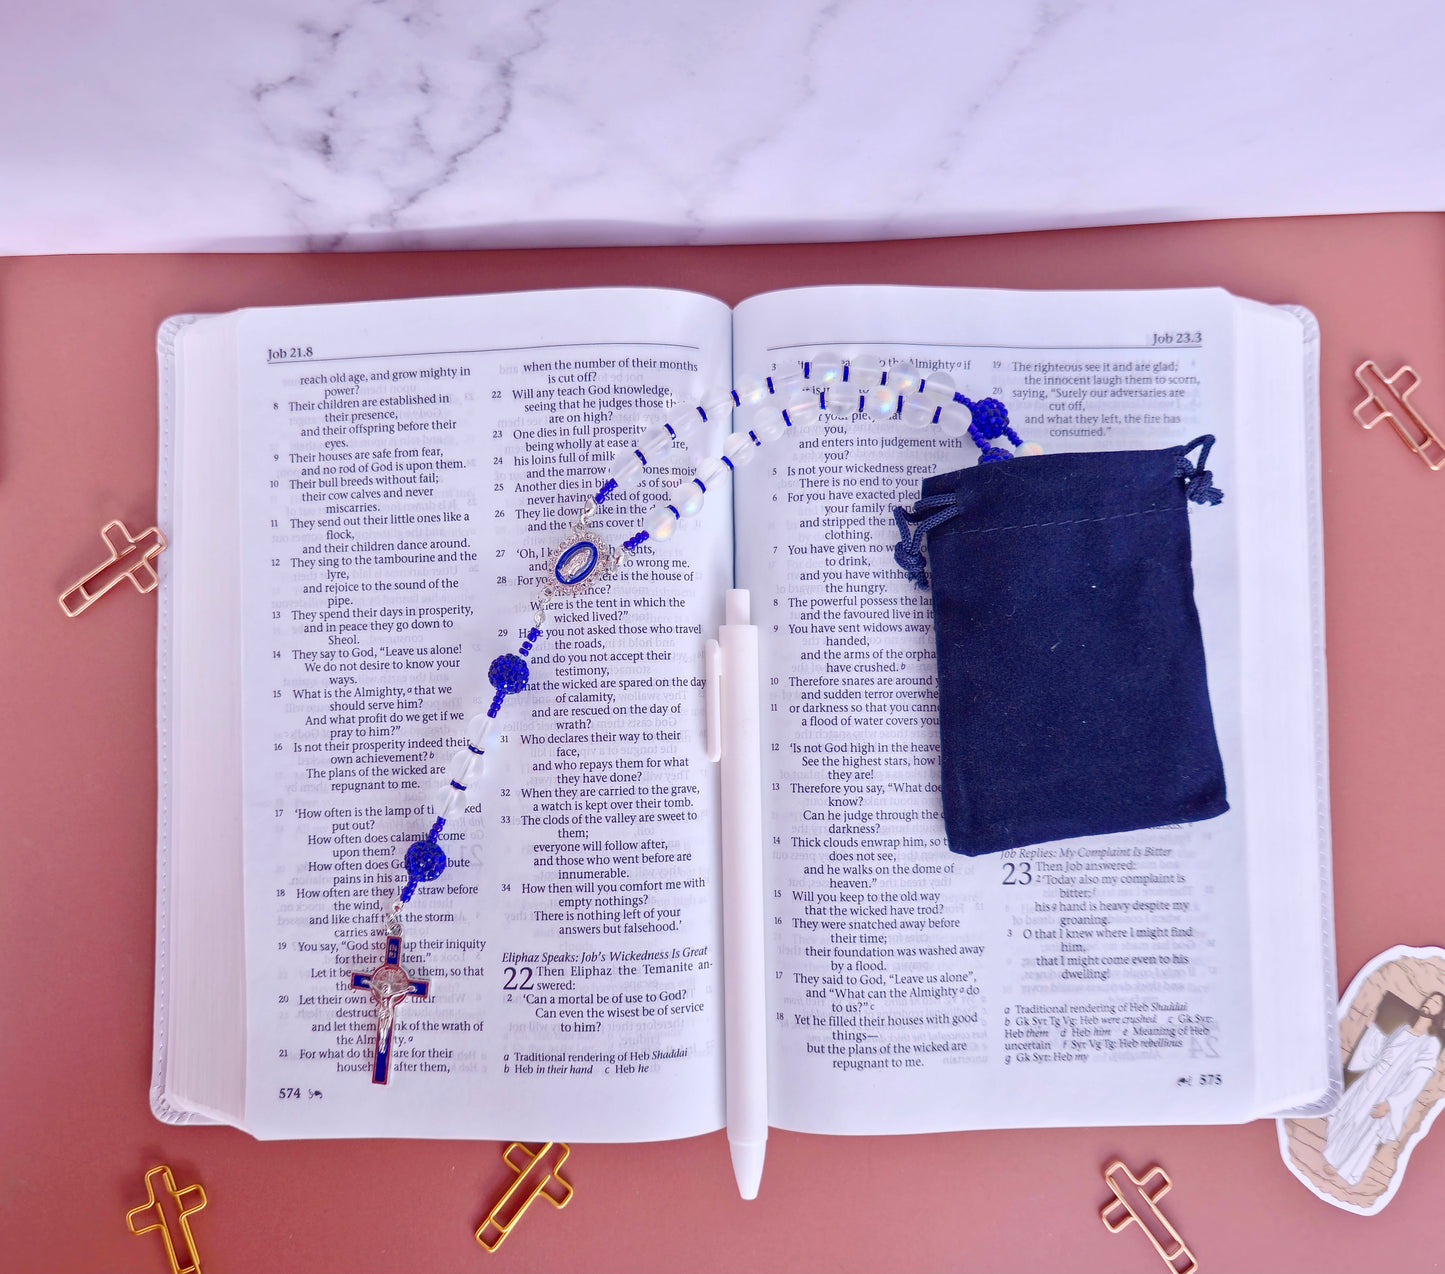 Job 21.8
reach old age, and grow mighty in
power?
8 Their children are established in
their presence,
and their offspring before their
eyes.
9 Their houses are safe from fear,
and no rod of God is upon them.
10 Their bull breeds without fail;
their cow calves and never
miscarries.
11 They send out their little ones like a
flock,
and their children dance around.
12 They sing to the tambourine and the
lyre,
and rejoice to the sound of the
pipe.
13 They spend their days in prosperity,
and in peace they go down to
Sheol.
14 They say to God, “Leave us alone!
We do not desire to know your
ways.
15 What is the Almighty, a that we
should serve him?
And what profit do we get if we
pray to him?”
16 Is not their prosperity indeed their
own achievement? b
The plans of the wicked are
repugnant to me.
17 ‘How often is the lamp of
put out?
How often does calamity come
upon them?
How often does
pains in his
18 How often are they straw before
the wind,
and like chaff that the storm
carries
19 You say, “God up their iniquity
for their
Let it be to them, so that
20 Let their own their
and let them of the wrath of
the a
21 For what do they care for their
after them,
when the number of their months
is cut off?
22 Will any teach God knowledge,
seeing that he judges those
are on high?
23 One dies in full prosperity
being wholly at ease
24 his loins full of milk
and the marrow bones moist
25 Another dies in of soul
never having tasted of good.
26 They lie down in the
and the cover
27 ‘Oh, I
to wrong me.
28 For is the house of
Where is the tent in which the
wicked lived?”
29 Have you not asked those who travel
the roads,
and do you not accept their
testimony,
that the wicked are spared on the day
of calamity,
and are rescued on the day of
wrath?
31 Who declares their way to their
face,
and who repays them for what
they have done?
32 When they are carried to the grave,
a watch is kept over their tomb.
33 The clods of the valley are sweet to
them;
everyone will follow after,
and those who went before are
innumerable.
34 How then will you comfort me with
empty nothings?
There is nothing left of your
answers but falsehood.’
Eliphaz Speaks: Job’s Wickedness Is Great
22 Then Eliphaz the Temanite an-
swered:
2 ‘Can a mortal be of use to God?
Can even the wisest be of service
to him?
a Traditional rendering of Heb Shaddai
b Heb in their hand c Heb he
574
Job 23.3
3 the Almighty a if
you,
and enters into judgement with
you?
5 Is not your wickedness great?
There is no end to your
6 For you have exacted
your family
and stripped the
clothing.
7 You have given no
to drink,
and you have withheld
the hungry.
8 The powerful possess the
and the favoured live in
9 You have sent widows away
handed,
and the arms of the
have crushed. b
10 Therefore snares are around
and sudden terror
11 or darkness so that you
a flood of water covers
12 ‘Is not God high in the
See the highest stars, how
they are!
13 Therefore you say, “What
know?
Can he judge through the
darkness?
14 Thick clouds enwrap him, so
does not see,
and he walks on the dome of
heaven.”
15 Will you keep to the old way
that the wicked have trod?
16 They were snatched away before
their time;
their foundation was washed away
by a flood.
17 They said to God, “Leave us alone”,
and “What can the Almighty a do
to us?” c
18 Yet he filled their houses with good
things—
but the plans of the wicked are
repugnant to me.
19 The righteous see it and are glad;
the innocent laugh them to scorn,
20 saying, “Surely our adversaries are
cut off,
and what they left, the fire has
consumed.”
Job Replies: My Complaint Is Bitter
23 Then Job answered:
2 ‘Today also my complaint is
bitter; f
his g hand is heavy despite my
groaning.
3 O that I knew where I might find
him,
that I might come even to his
dwelling!
a Traditional rendering of Heb Shaddai
b Gk Syr Tg Vg: Heb were crushed c Gk Syr:
Heb them d Heb him e Meaning of Heb
uncertain f Syr Vg Tg: Heb rebellious
g Gk Syr: Heb my
575